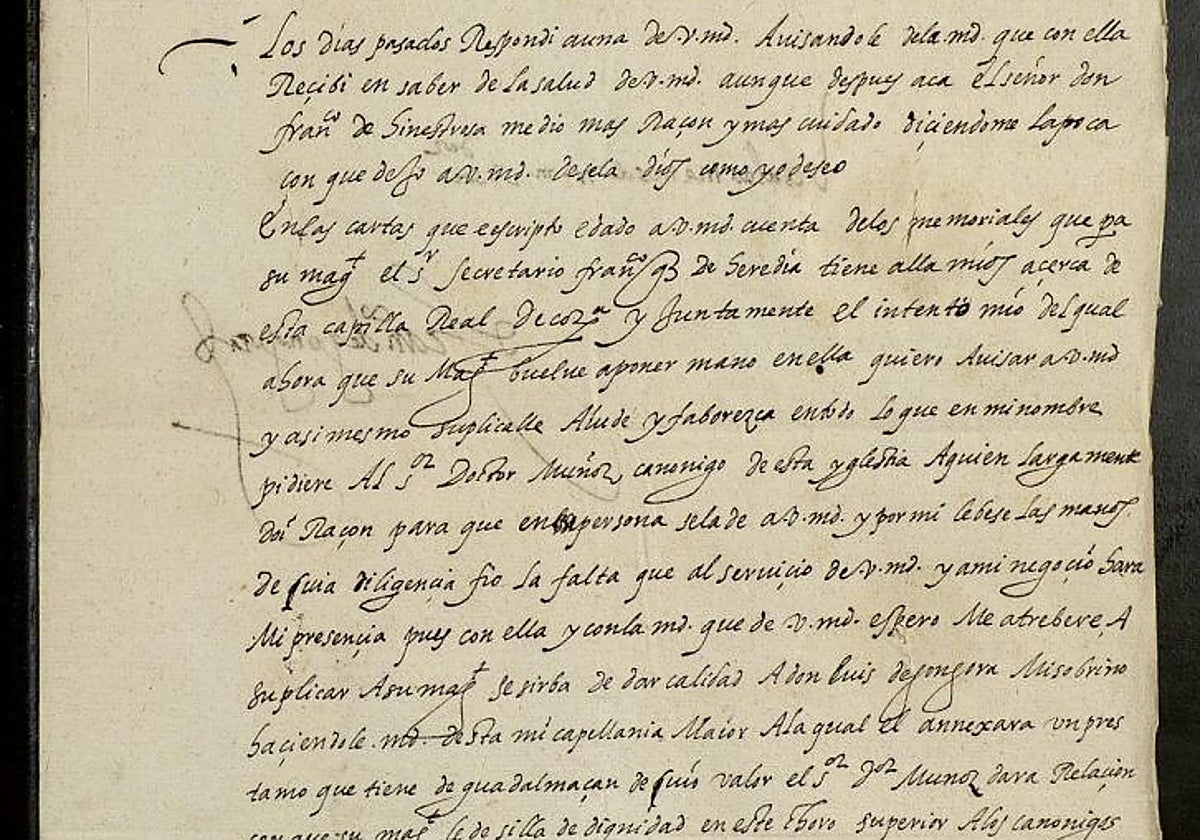 Los dias pasados Respondi a una de v.md. Auisandole dela md. que con ella
Reçibi en saber de la salud de v.md. aunque despues aca el señor don
fran.co de hinestrosa me dio mas Raçon y mas cuidado diçiendome la poca
con que desso a v.md. desela dios como yo deseo
En las cartas que e escripto e dado a v.md. cuenta delos memoriales que pa
su mag.t el s.r secretario fran.co de heredia tiene alla mios açerca de
esta capilla Real de cor.a y Juntamente el intento mio del qual
ahora que su Mag.t buelue a poner mano en ella quiero Auisar a v.md
y asi mesmo suplicalle Aiude y faborezca en todo lo que en mi nombre
pidiere Al s.or Doctor Muñoz canonigo de esta yglesia A quien largamente
doi Raçon para que en persona sela de a v.md. y por mi le bese las manos
de cuia diligençia fio la falta que al serviçio de v.md. y a mi negoçio hara
Mi presençia pues con ella y con la md. que de v.md. espero Me atrebere A
suplicar A su mag.t se sirba de dar calidad A don luis de gongora Mi sobrino
haçiendole md. desta mi capellania Maior A la qual el annexara vn pres
tamo que tiene de guadalmaçan de cuio valor el s.or D.or Munoz dara Relaçion
con que su mag.t le de silla de dignidad en este choro superior A los canonigos